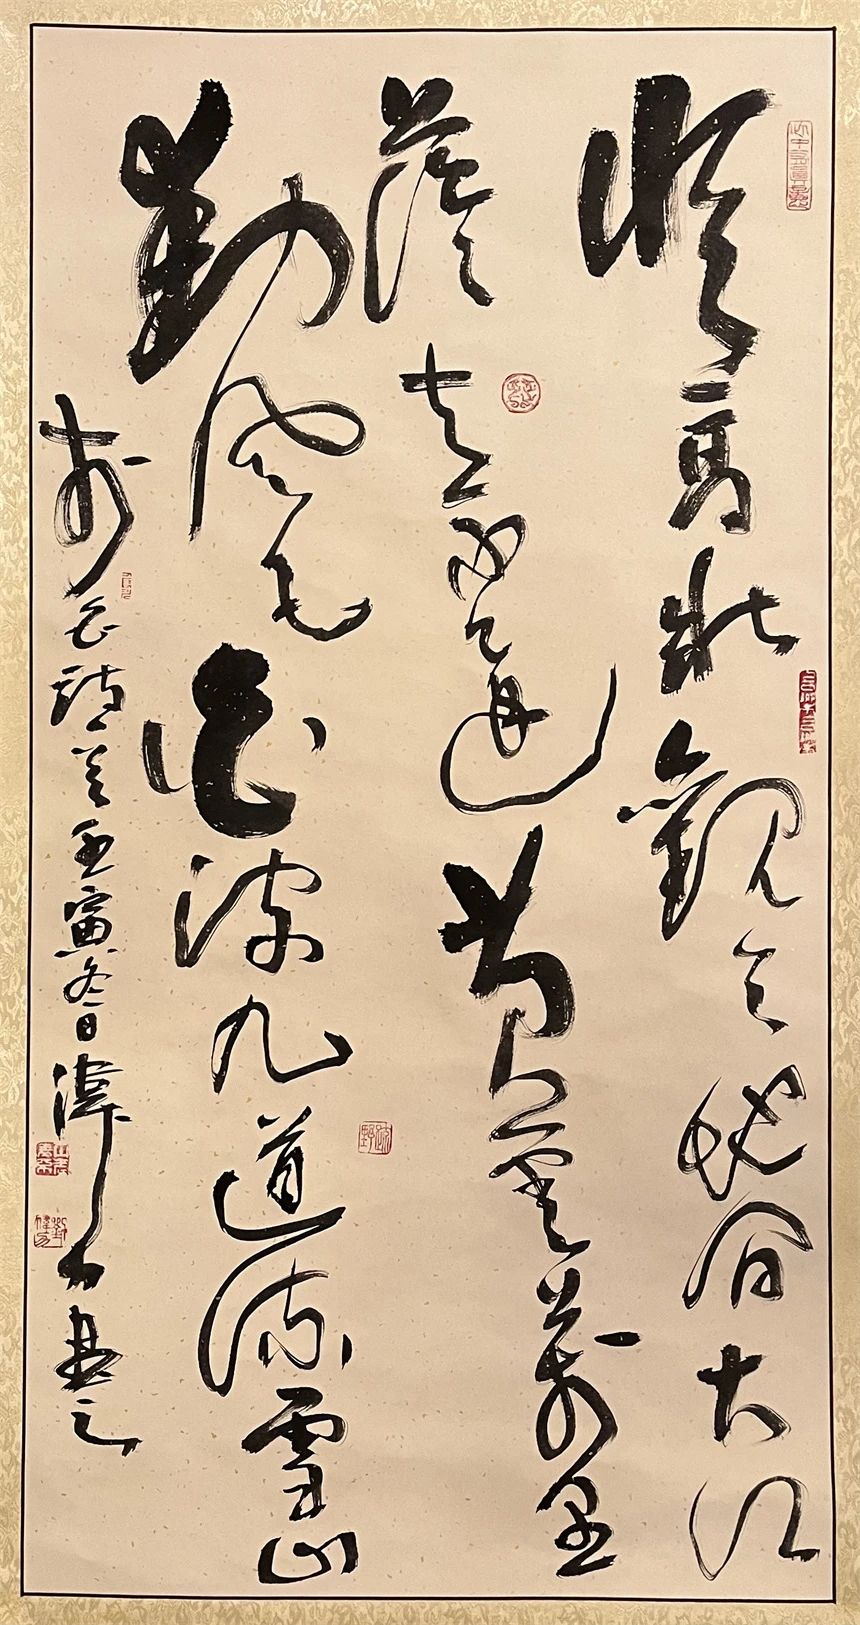 登高壯觀天地間大江
茫茫去不還黃雲萬里
動風色白波九道流雪山
李白詩 壬寅冬日 書之